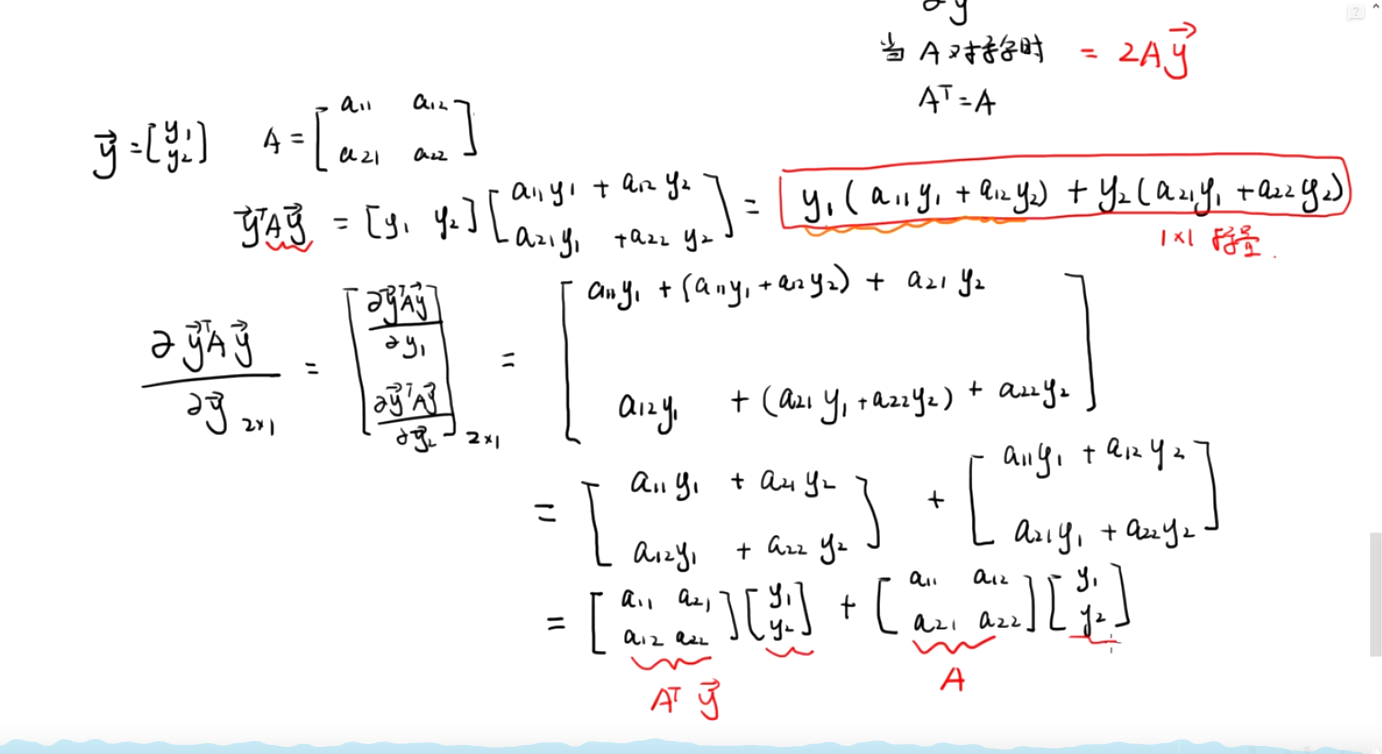 ∂y
当 A 对称时 = 2Ay⃗
Aᵀ=A
y⃗ = [y₁ y₂] A = [a₁₁ a₁₂
a₂₁ a₂₂]
y⃗ᵀAy⃗ = [y₁ y₂] [a₁₁y₁ + a₁₂y₂
a₂₁y₁ + a₂₂y₂] = y₁(a₁₁y₁ + a₁₂y₂) + y₂(a₂₁y₁ + a₂₂y₂)
1×1 标量.
∂y⃗ᵀAy⃗ / ∂y⃗ 2×1 = [∂y⃗ᵀAy⃗ / ∂y₁
∂y⃗ᵀAy⃗ / ∂y⃗₂] 2×1 = [a₁₁y₁ + (a₁₁y₁ + a₁₂y₂) + a₂₁y₂
a₁₂y₁ + (a₂₁y₁ + a₂₂y₂) + a₂₂y₂]
= [a₁₁y₁ + a₂₁y₂
a₁₂y₁ + a₂₂y₂] + [a₁₁y₁ + a₁₂y₂
a₂₁y₁ + a₂₂y₂]
= [a₁₁ a₂₁
a₁₂ a₂₂] [y₁
y₂] + [a₁₁ a₁₂
a₂₁ a₂₂] [y₁
y₂]
Aᵀ y⃗ A